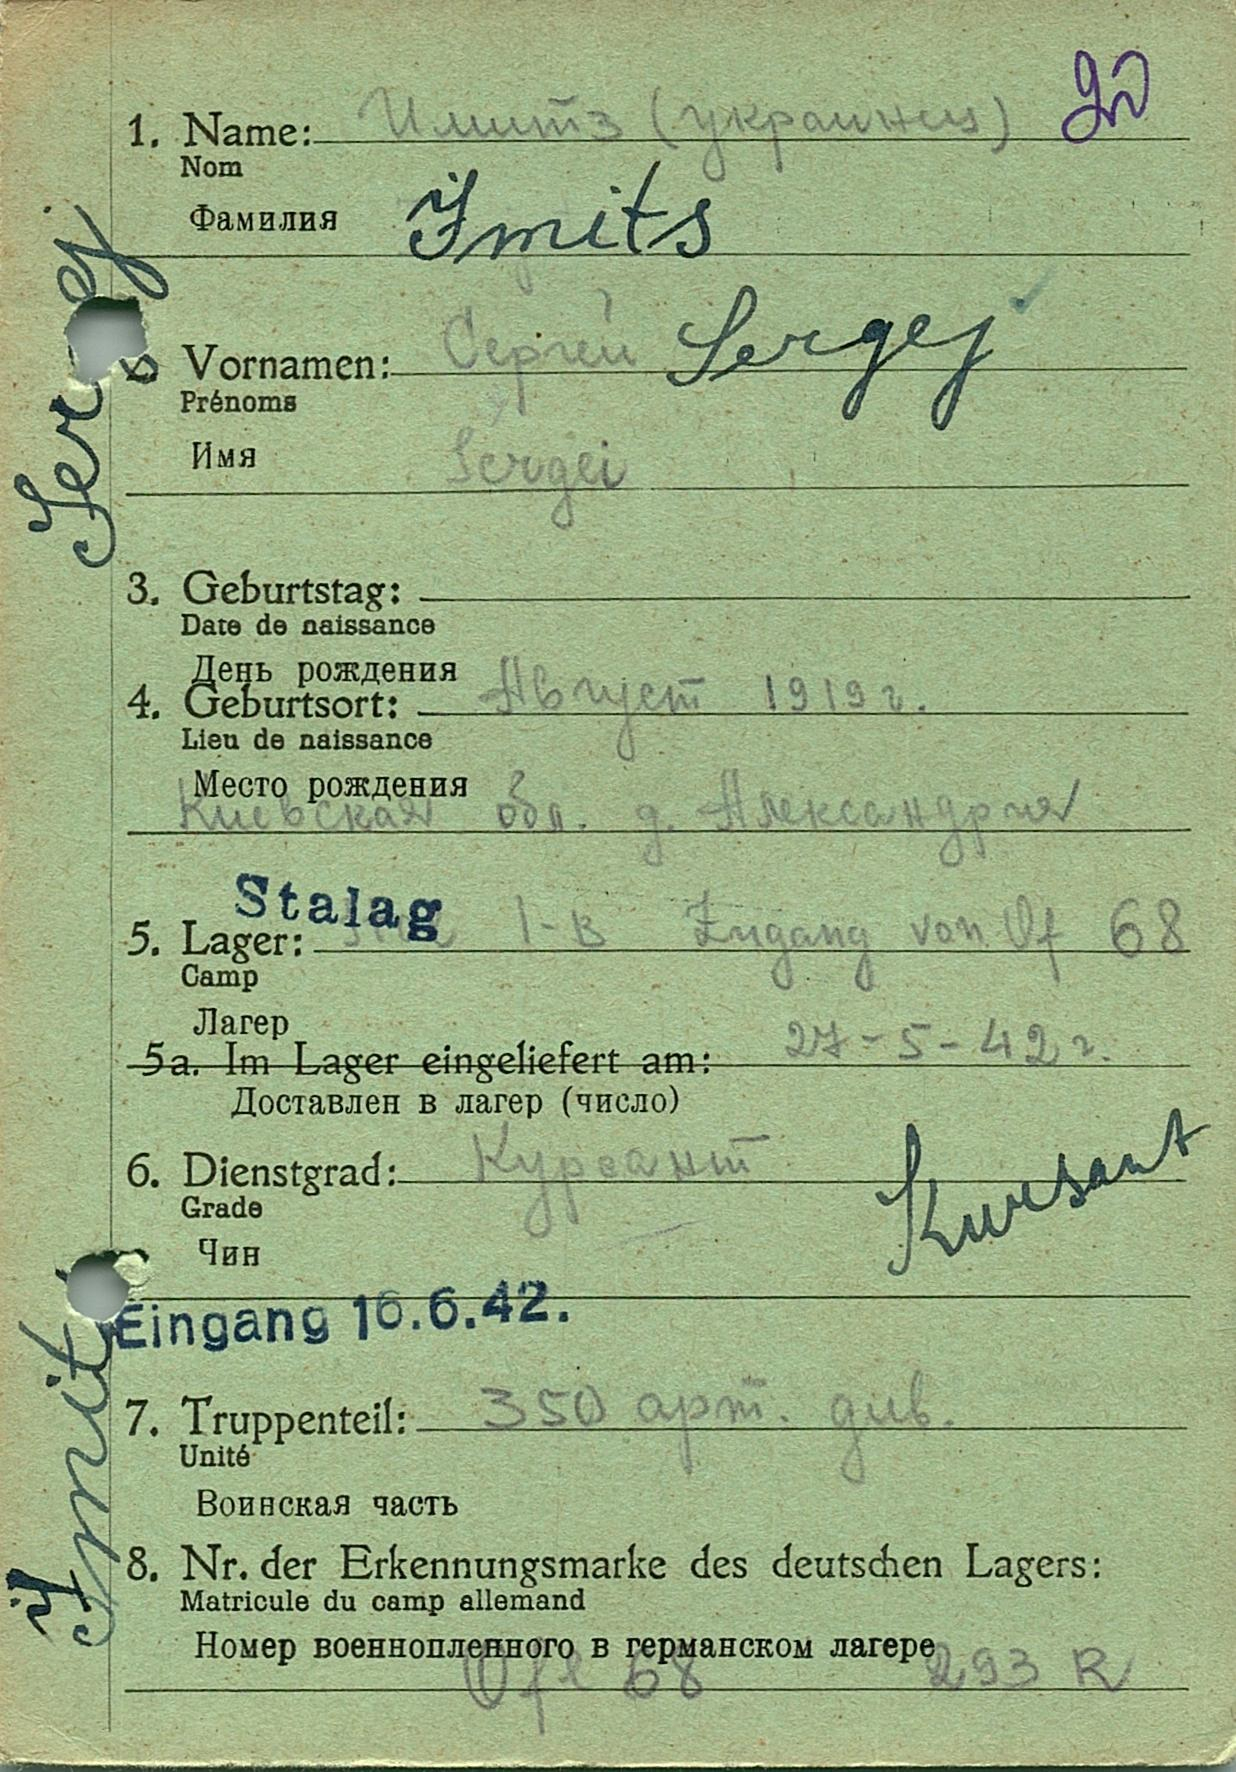 1. Name: Имитз (украинец)
Nom
Фамилия Imits
Vornamen: Сергей Sergej
Prénoms
Имя Sergei
3. Geburtstag:
Date de naissance
День рождения
4. Geburtsort: Август 1919 г.
Lieu de naissance
Место рождения
Киевская обл. д. Александрия
Stalag
5. Lager: I-B Zugang von Of 68
Camp
Лагер
5a. Im Lager eingeliefert am: 27-5-42 г.
Доставлен в лагер (число)
6. Dienstgrad: Курсант Kursant
Grade
Чин
Eingang 16.6.42.
7. Truppenteil: 350 арт. див.
Unité
Воинская часть
8. Nr. der Erkennungsmarke des deutschen Lagers:
Matricule du camp allemand
Номер военнопленного в германском лагере
Ofl 68 293 R
Sergej
Imits